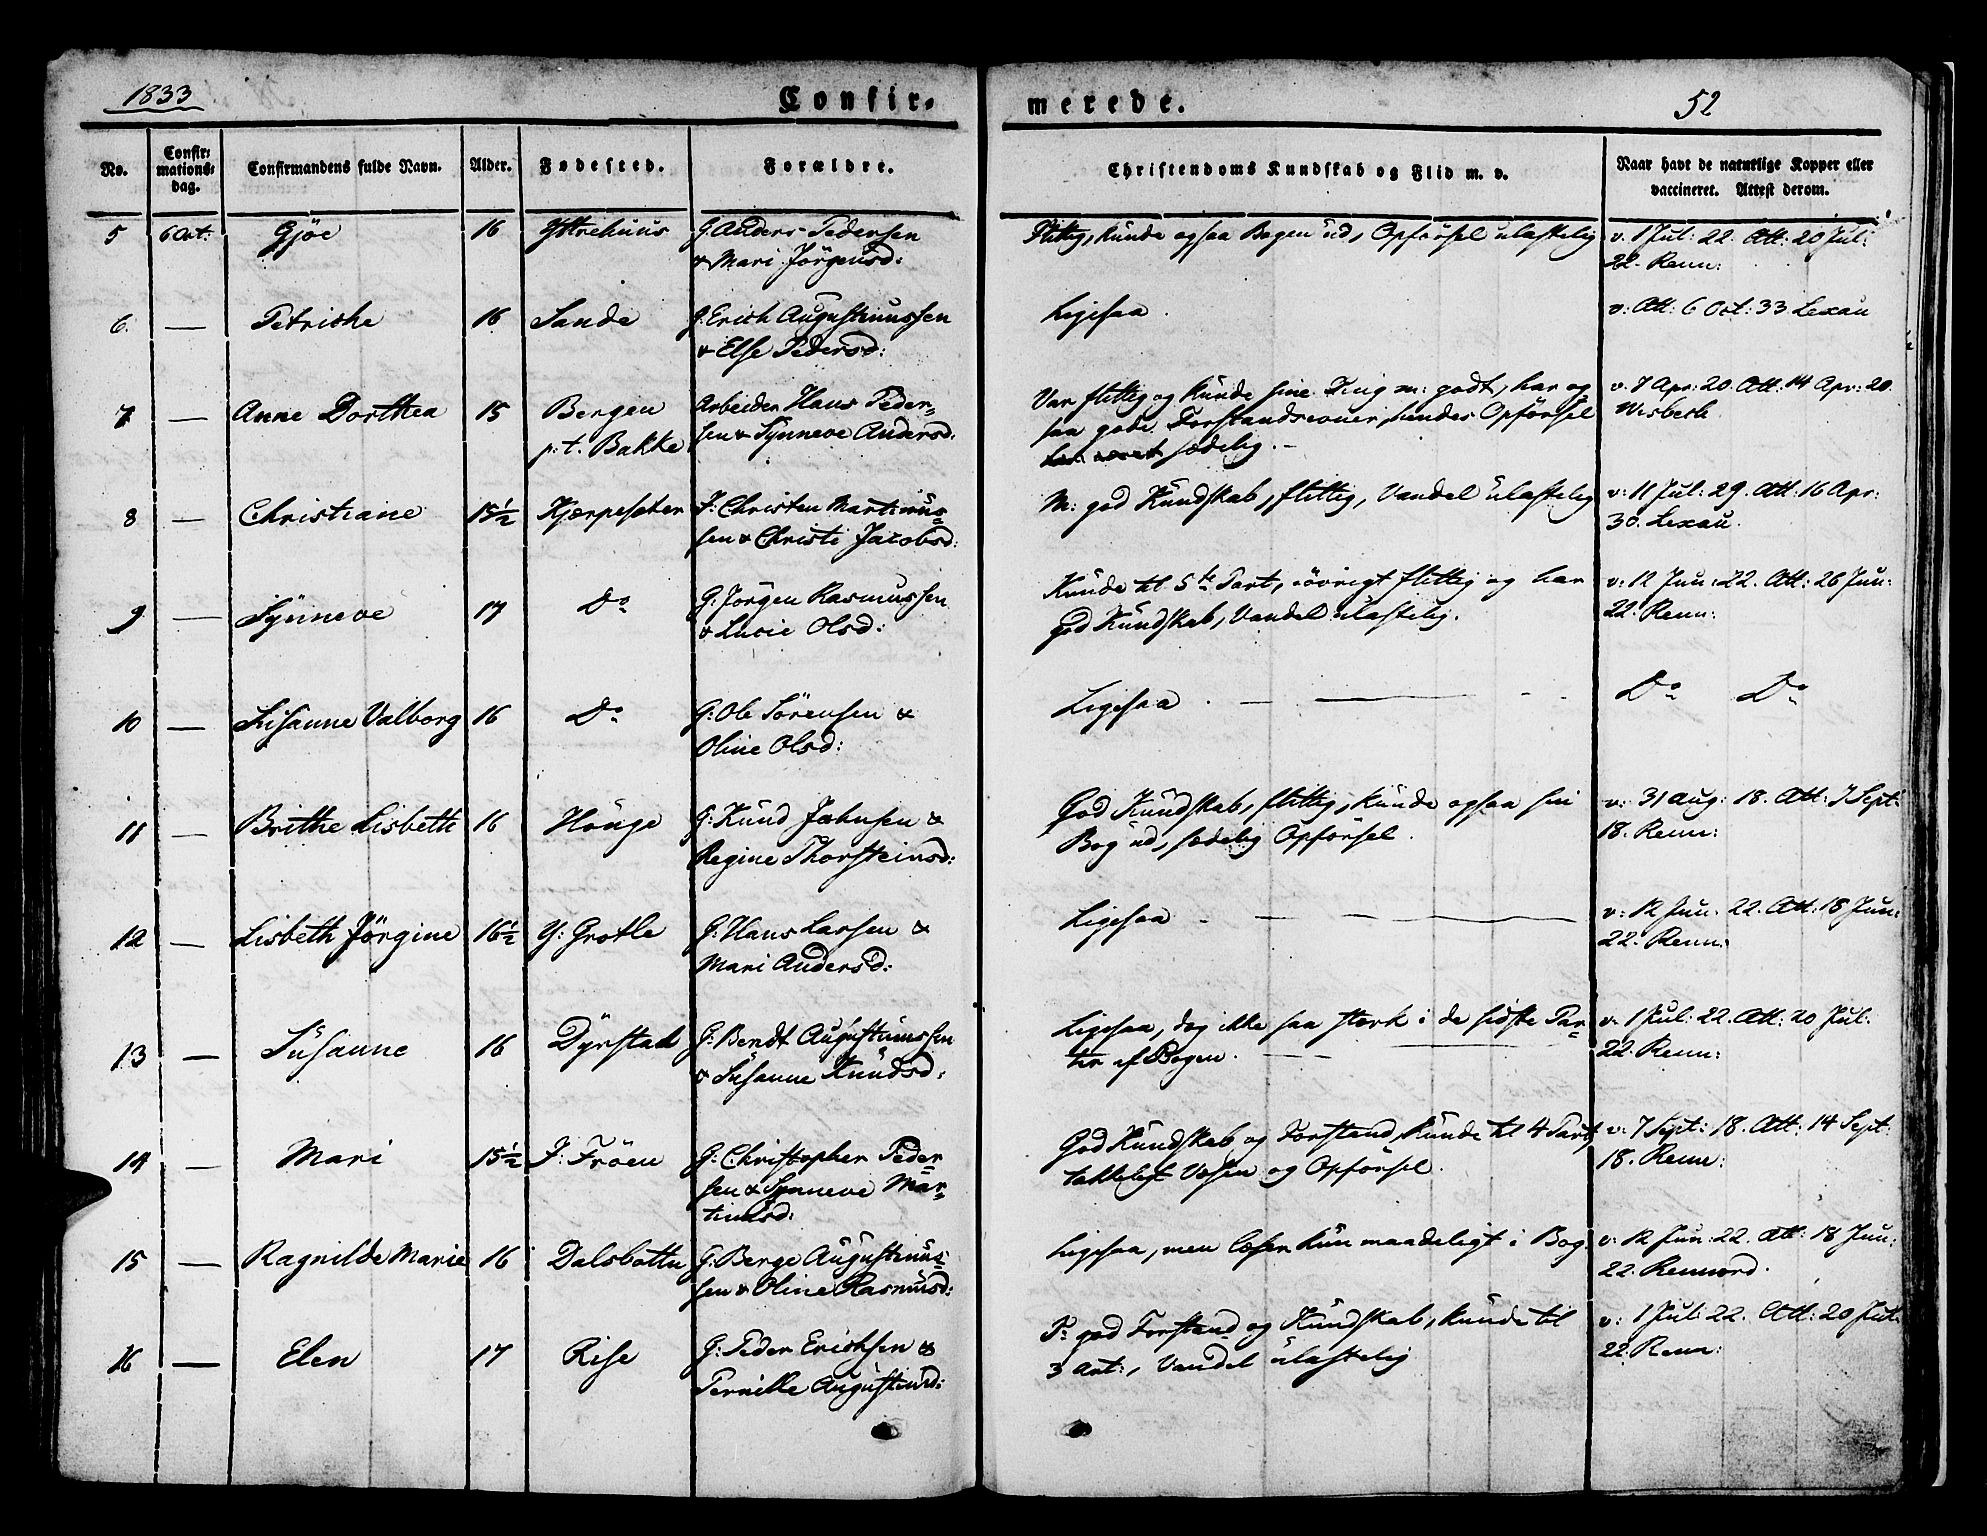 1833
Confir-
merede.
52
No.
Confir-
mations-
dag.
Confirmandens fulde Navn.
Alder.
Fødested.
Forældre.
Christendoms Kundskab og Flid m. v.
Naar havt de naturlige Kopper eller
vaccineret. Attest derom.
5 6 Oct: Gjøe 16 Yttrehuus G. Anders Pedersen
& Mari Jörgensd:
Flittig, kunde ogsaa Bogen ud, Opförsel ulastelig
v. 1 Jul: 22. Att: 20 Jul:
22. Renn:
6. — Petrike 16 Sande G: Erich Augustinussen
& Else Pedersd:
Ligesaa.
v: Att: 6 Oct: 33 Lexau
7 — Anne Dorthea 15 Bergen
p: t. Bakke
Arbeider Hans Peder-
sen & Synneve Andersd.
Var flittig og kunde sine Ting m: godt, har og
saa gode Forstandsevner, hendes Opförsel
har været sædelig. —
v. 7 Apr: 20. Att: 14 Apr: 20.
Wisbech
8 — Christiane 15½ Kjerpesæter J: Christen Martinus-
sen & Christi Jacobsd:
M: god Kundskab, flittig, Vandel ulastelig
v: 11 Jul: 29. Att: 16 Apr:
30. Lexau.
9 — Synneve 17 Do G: Jörgen Rasmussen
& Lucie Olsd:
Kunde til 5te Part, iøvrigt flittig og har
god Kundskab, Vandel ulastelig.
v: 12 Jun: 22. Att: 26 Jun:
22. Renn:
10 — Susanne Valborg 16 Do G: Ole Sörensen &
Oline Olsd:
Ligesaa. — — —
Do Do
11 — Brithe Lisbeth 16 Hauge G: Knud Johnsen &
Regine Thorsteinsd:
God Kundskab, flittig, kunde ogsaa sin
Bog ud, sædelig Opførsel.
v: 31 Aug: 18. Att: 7 Sept:
18. Renn:
12 — Lisbeth Jörgine 16½ Y: Grotle G: Hans Larsen &
Mari Andersd:
Ligesaa — — —
v: 12 Jun. 22. Att: 18 Jun:
22. Renn:
13 — Susanne 16 Dyrstad G: Bendt Augustinussen
& Susanne Knudsd:
Ligesaa, dog ikke saa stærk i de sidste Par-
ter af Bogen. — —
v. 1 Jul: 22. Att: 20 Jul:
22. Renn:
14 — Mari 15½ J: Fröen G: Christopher Peder-
sen & Synneve Mar-
tinusd:
God Kundskab og Forstand, kunde til 4 Part,
tækkeligt Væsen og Opførsel.
v: 7 Sept: 18. Att: 14 Sept:
18. Renn:
15 — Ragnilde Marie 16 Dalsbotten G: Berge Augustinus-
sen & Oline Rasmusd:
Ligesaa, men læser kun maadeligt i Bog.
v: 12 Jun: 22. Att: 18 Jun:
22. Rennord.
16 — Elen 17 Rise G: Peder Erichsen &
Pernille Augustind:
T: god Forstand og Kundskab, kunde til
3 Art:, Vandel ulastelig
v: 1 Jul: 22. Att: 20 Jul:
22. Renn: